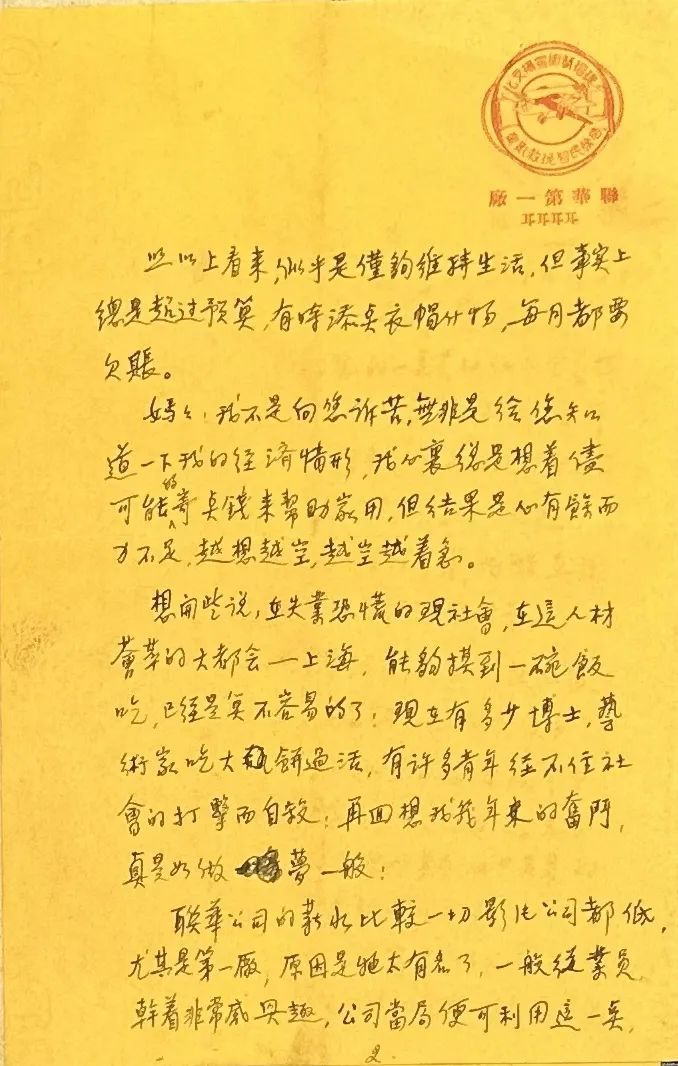 提倡藝術宣揚文化
啟發民智挽救影業
聯華第一廠
照以上看来,似乎是僅夠維持生活,但事实上
總是超过預算,有時添点衣帽什物,每月都要
欠賬。
媽媽:我不是向您诉苦,無非是给您知
道一下我的经濟情形,我心裏總是想着儘
可能的寄点錢来幫助家用,但结果是心有餘而
力不足,越想越空,越空越着急。
想開些说,在失業恐慌的現社會,在這人材
薈萃的大都会—上海,能夠摸到一碗飯
吃,已经是莫不容易的了;現在有多少博士,藝
術家吃大餅過活,有许多青年经不住社
會的打擊而自殺;再回想我幾年来的奮鬥,
真是如做夢一般;
联華公司的薪水比較一切影片公司都低,
尤其是第一廠,原因是牠太有名了,一般從業員
幹着非常感興趣,公司當局便可利用這一点,
2.